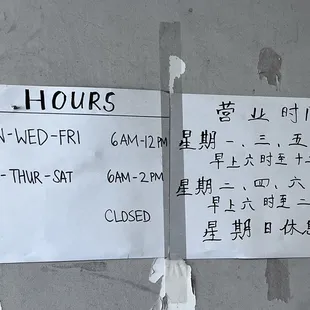 HOURS
N-WED-FRI 6AM-12PM
-THUR-SAT 6AM-2PM
CLOSED
营业时间
星期一、三、五
早上六时至十
星期二、四、六
早上六时至二
星期日休息